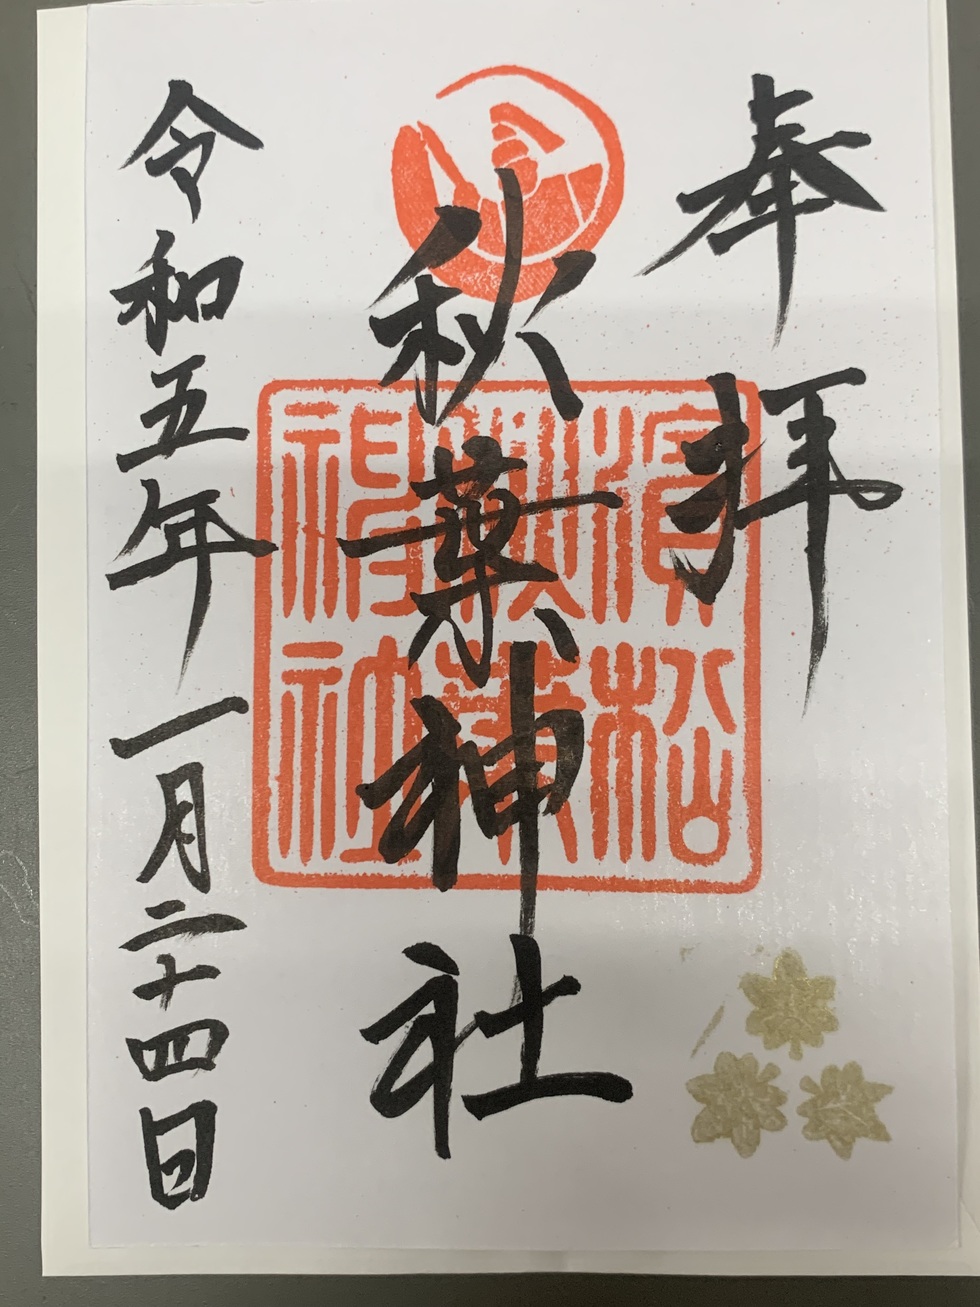 奉拝
秋葉神社
濱松
秋葉
神社
令和五年一月二十四日